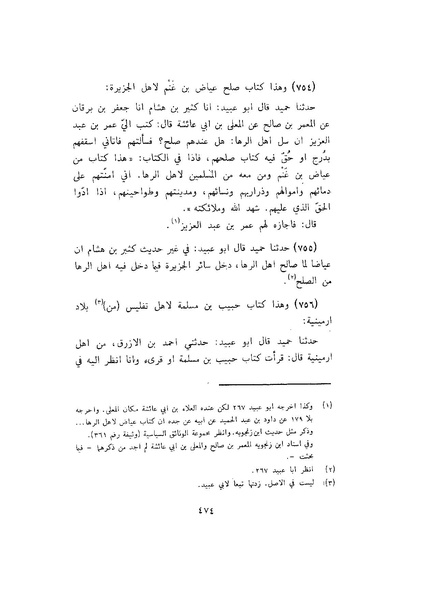 (٧٥٤) وهذا كتاب صلح عياض بن غَنْم لاهل الجزيرة:
حدثنا حميد قال ابو عبيد: انا كثير بن هشام انا جعفر بن برقان
عن المعمر بن صالح عن المعلى بن ابي عائشة قال: كتب اليّ عمر بن عبد
العزيز ان سل اهل الرها: هل عندهم صلح؟ فسألتهم فاتاني اسقفهم
بدُرج او حُقّ فيه كتاب صلحهم، فاذا في الكتاب: «هذا كتاب من
عياض بن غَنْم ومن معه من المسلمين لاهل الرها. اني امنتهم على
دمائهم واموالهم وذراريهم ونسائهم، ومدينتهم وطواحينهم، اذا ادّوا
الحقّ الذي عليهم. شهد الله وملائكته».
قال: فاجازه لهم عمر بن عبد العزيز(١).
(٧٥٥) حدثنا حميد قال ابو عبيد: في غير حديث كثير بن هشام ان
عياضا لما صالح اهل الرها، دخل سائر الجزيرة فيما دخل فيه اهل الرها
من الصلح(٢).
(٧٥٦) وهذا كتاب حبيب بن مسلمة لاهل تفليس (من)(٣) بلاد
ارمينية:
حدثنا حميد قال ابو عبيد: حدثني احمد بن الازرق، من اهل
ارمينية قال: قرأت كتاب حبيب بن مسلمة او قرىء وأنا انظر اليه في
(١) وكذا اخرجه ابو عبيد ٢٦٧ لكن عنده العلاء بن ابي عائشة مكان المعلى. واخرجه
بلا ١٧٩ عن داود بن عبد الحميد عن ابيه عن جده ان كتاب عياض لاهل الرها...
وذكر مثل حديث ابن زنجويه. وانظر مجموعة الوثائق السياسية (وثيقة رقم ٣٦١).
وفي اسناد ابن زنجويه المعمر بن صالح والمعلى بن ابي عائشة لم اجد من ذكرهما - فيما
بحثت -.
(٢) انظر ابا عبيد ٢٦٧.
(٣): ليست في الاصل. زدتها تبعا لابي عبيد.
٤٧٤